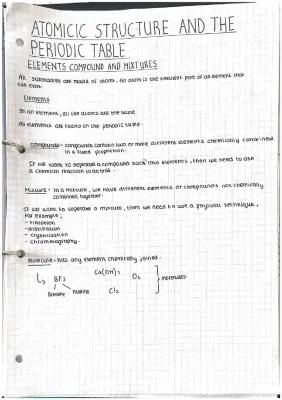 ATOMICIC STRUCTURE AND THE
PERIODIC TABLE
ELEMENTS COMPOUND AND MIXTURES
All substances are made of atoms. An atom is the smallest part of an element that
can exist.
Elements
In an element, all the atoms are the same
All elements are found on the periodic table.
Compounds - compounds contain two or more different elements chemically combined
in a fixed proportion.
If we want to seperate a compound back into elements, then we need to use
a chemical reaction to do this.
Mixture - in a mixture, we have different elements or compounds not chemically
combined together.
If we want to seperate a mixture, then we need to use a physical technique,
for example;
- filtration
- distillation
- crystallisation
- chromatography.
molecule - has any element chemically joined.
BF3 Ca(OH)2 O2 molecules
Bromine fluorine Cl2